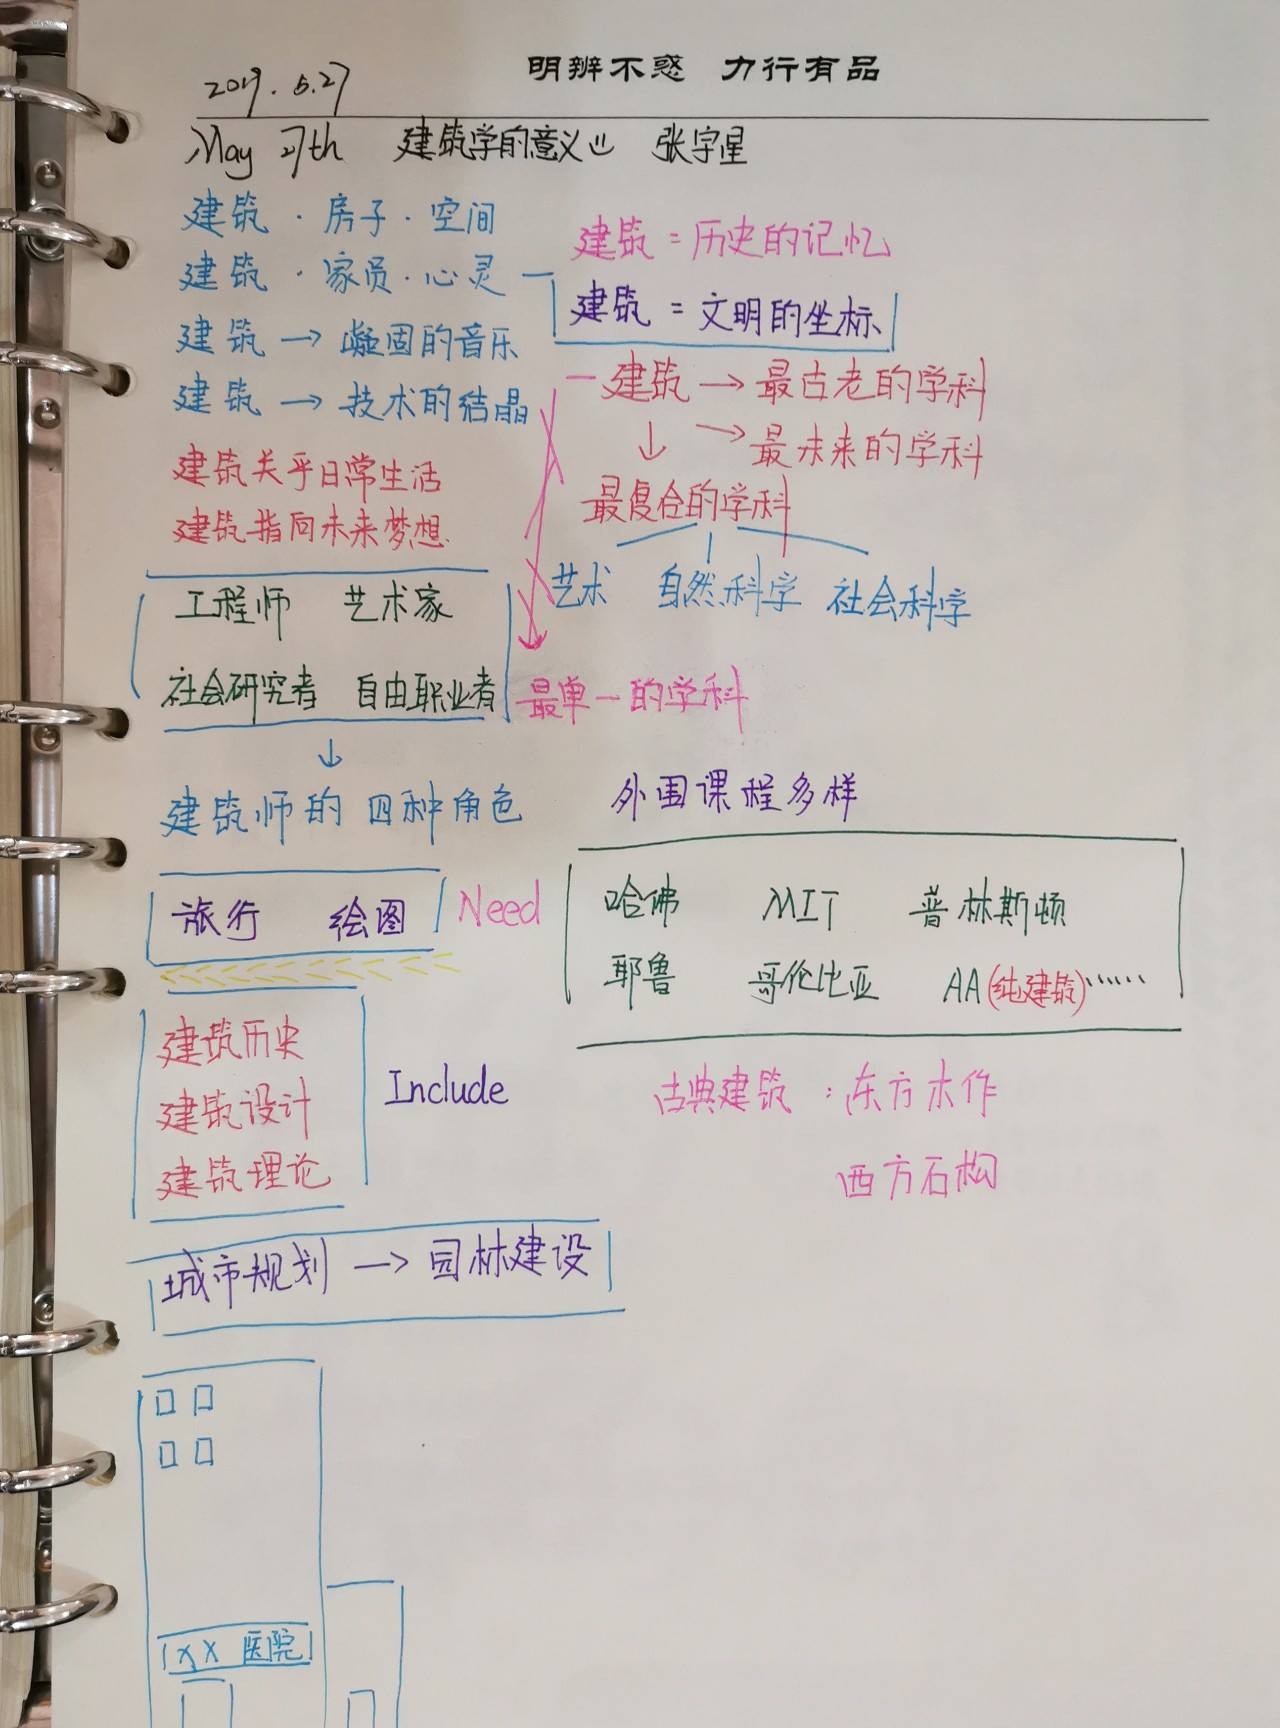 明辨不惑 力行有品
2019.5.27
May 27th 建筑学的意义 张宇星
建筑·房子·空间
建筑·家园·心灵
建筑→凝固的音乐
建筑→技术的结晶
建筑关乎日常生活
建筑指向未来梦想
工程师 艺术家
社会研究者 自由职业者
↓
建筑师的四种角色
旅行 绘图 Need
建筑历史
建筑设计
建筑理论
Include
城市规划→园林建设
XX 医院
建筑=历史的记忆
建筑=文明的坐标
建筑→最古老的学科
→最未来的学科
↓
最复合的学科
艺术 自然科学 社会科学
最单一的学科
外国课程多样
哈佛 MIT 普林斯顿
耶鲁 哥伦比亚 AA(纯建筑)……
古典建筑:东方木作
西方石构